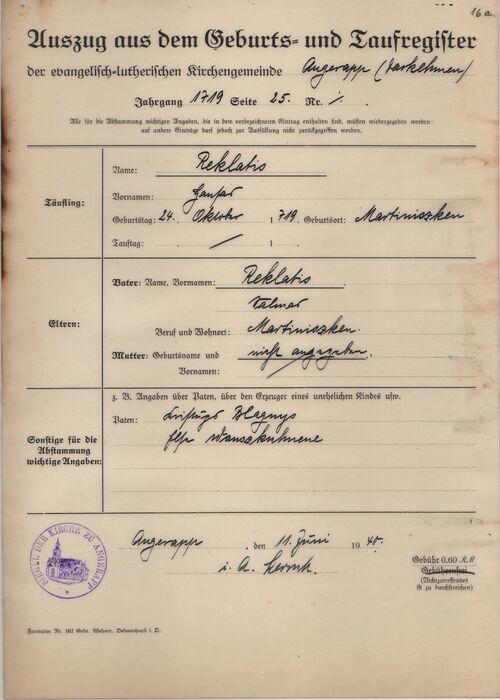 16a.
Auszug aus dem Geburts- und Taufregister
der evangelisch-lutherischen Kirchengemeinde Angerapp (Darkehmen)
Jahrgang 1719 Seite 25. Nr. /.
Alle für die Abstammung wichtigen Angaben, die in dem vorbezeichneten Eintrag enthalten sind, müssen wiedergegeben werden;
auf andere Einträge darf jedoch zur Ausfüllung nicht zurückgegriffen werden.
Täufling:
Name: Reklatis
Vornamen:
Geburtstag: 24. Oktober 1719. Geburtsort: Martiniszken
Tauftag: / 1
Eltern:
Vater: Name, Vornamen: Reklatis
Valmar
Beruf und Wohnort: Martiniszken.
Mutter: Geburtsname und nicht angegeben.
Vornamen: /
Sonstige für die
Abstammung
wichtige Angaben:
z. B. Angaben über Paten, über den Erzeuger eines unehelichen Kindes usw.
Paten: Blagnys
Wanszkuhnene
EVGL. KIRCHE ZU ANGERAPP
Angerapp, den 11. Juni 1940.
i. A.
Gebühr 0.60 RM
Gebührenfrei
(Nichtzutreffendes
ist zu durchstreichen)
Formular Nr. 102 Gebr. Wehner, Delmenhorst i. O.